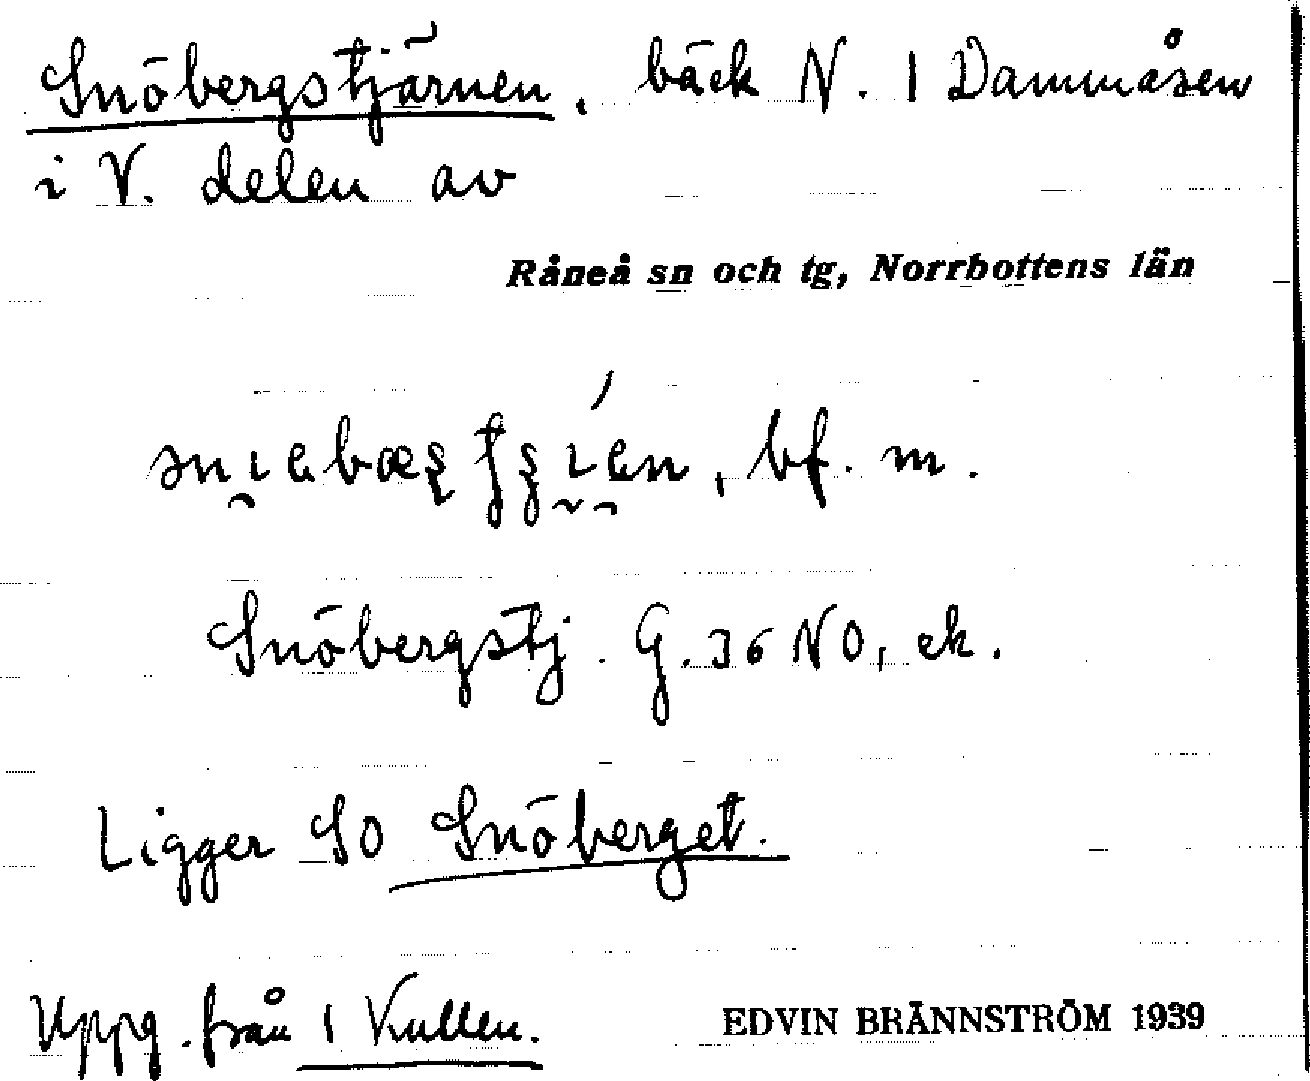 Snöbergstjärnen, bäck N. 1 Dammåsen
i V. delen av
Råneå sn och tg, Norrbottens län
bf. m.
Snöbergstj. G. 36 NO, ek.
Ligger SO Snöberget.
Uppg. från 1 Kullen.
EDVIN BRÄNNSTRÖM 1939